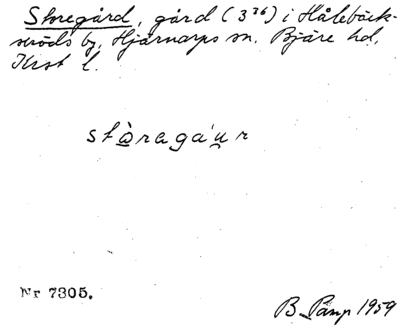 Storegård, gård (3³⁶) i Hålebäck-
seröds by, Hjärnarps sn. Bjäre hd.
Krist l.
stòraga'ur
Nr 7305.
B. Pamp 1959